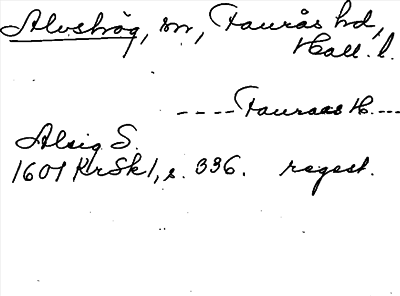 Alvshög, m, Faurås hd,
Hall. l.
---- Fauraas H. ---
Alsig S.
1601 KrSkl, s. 336. regest.